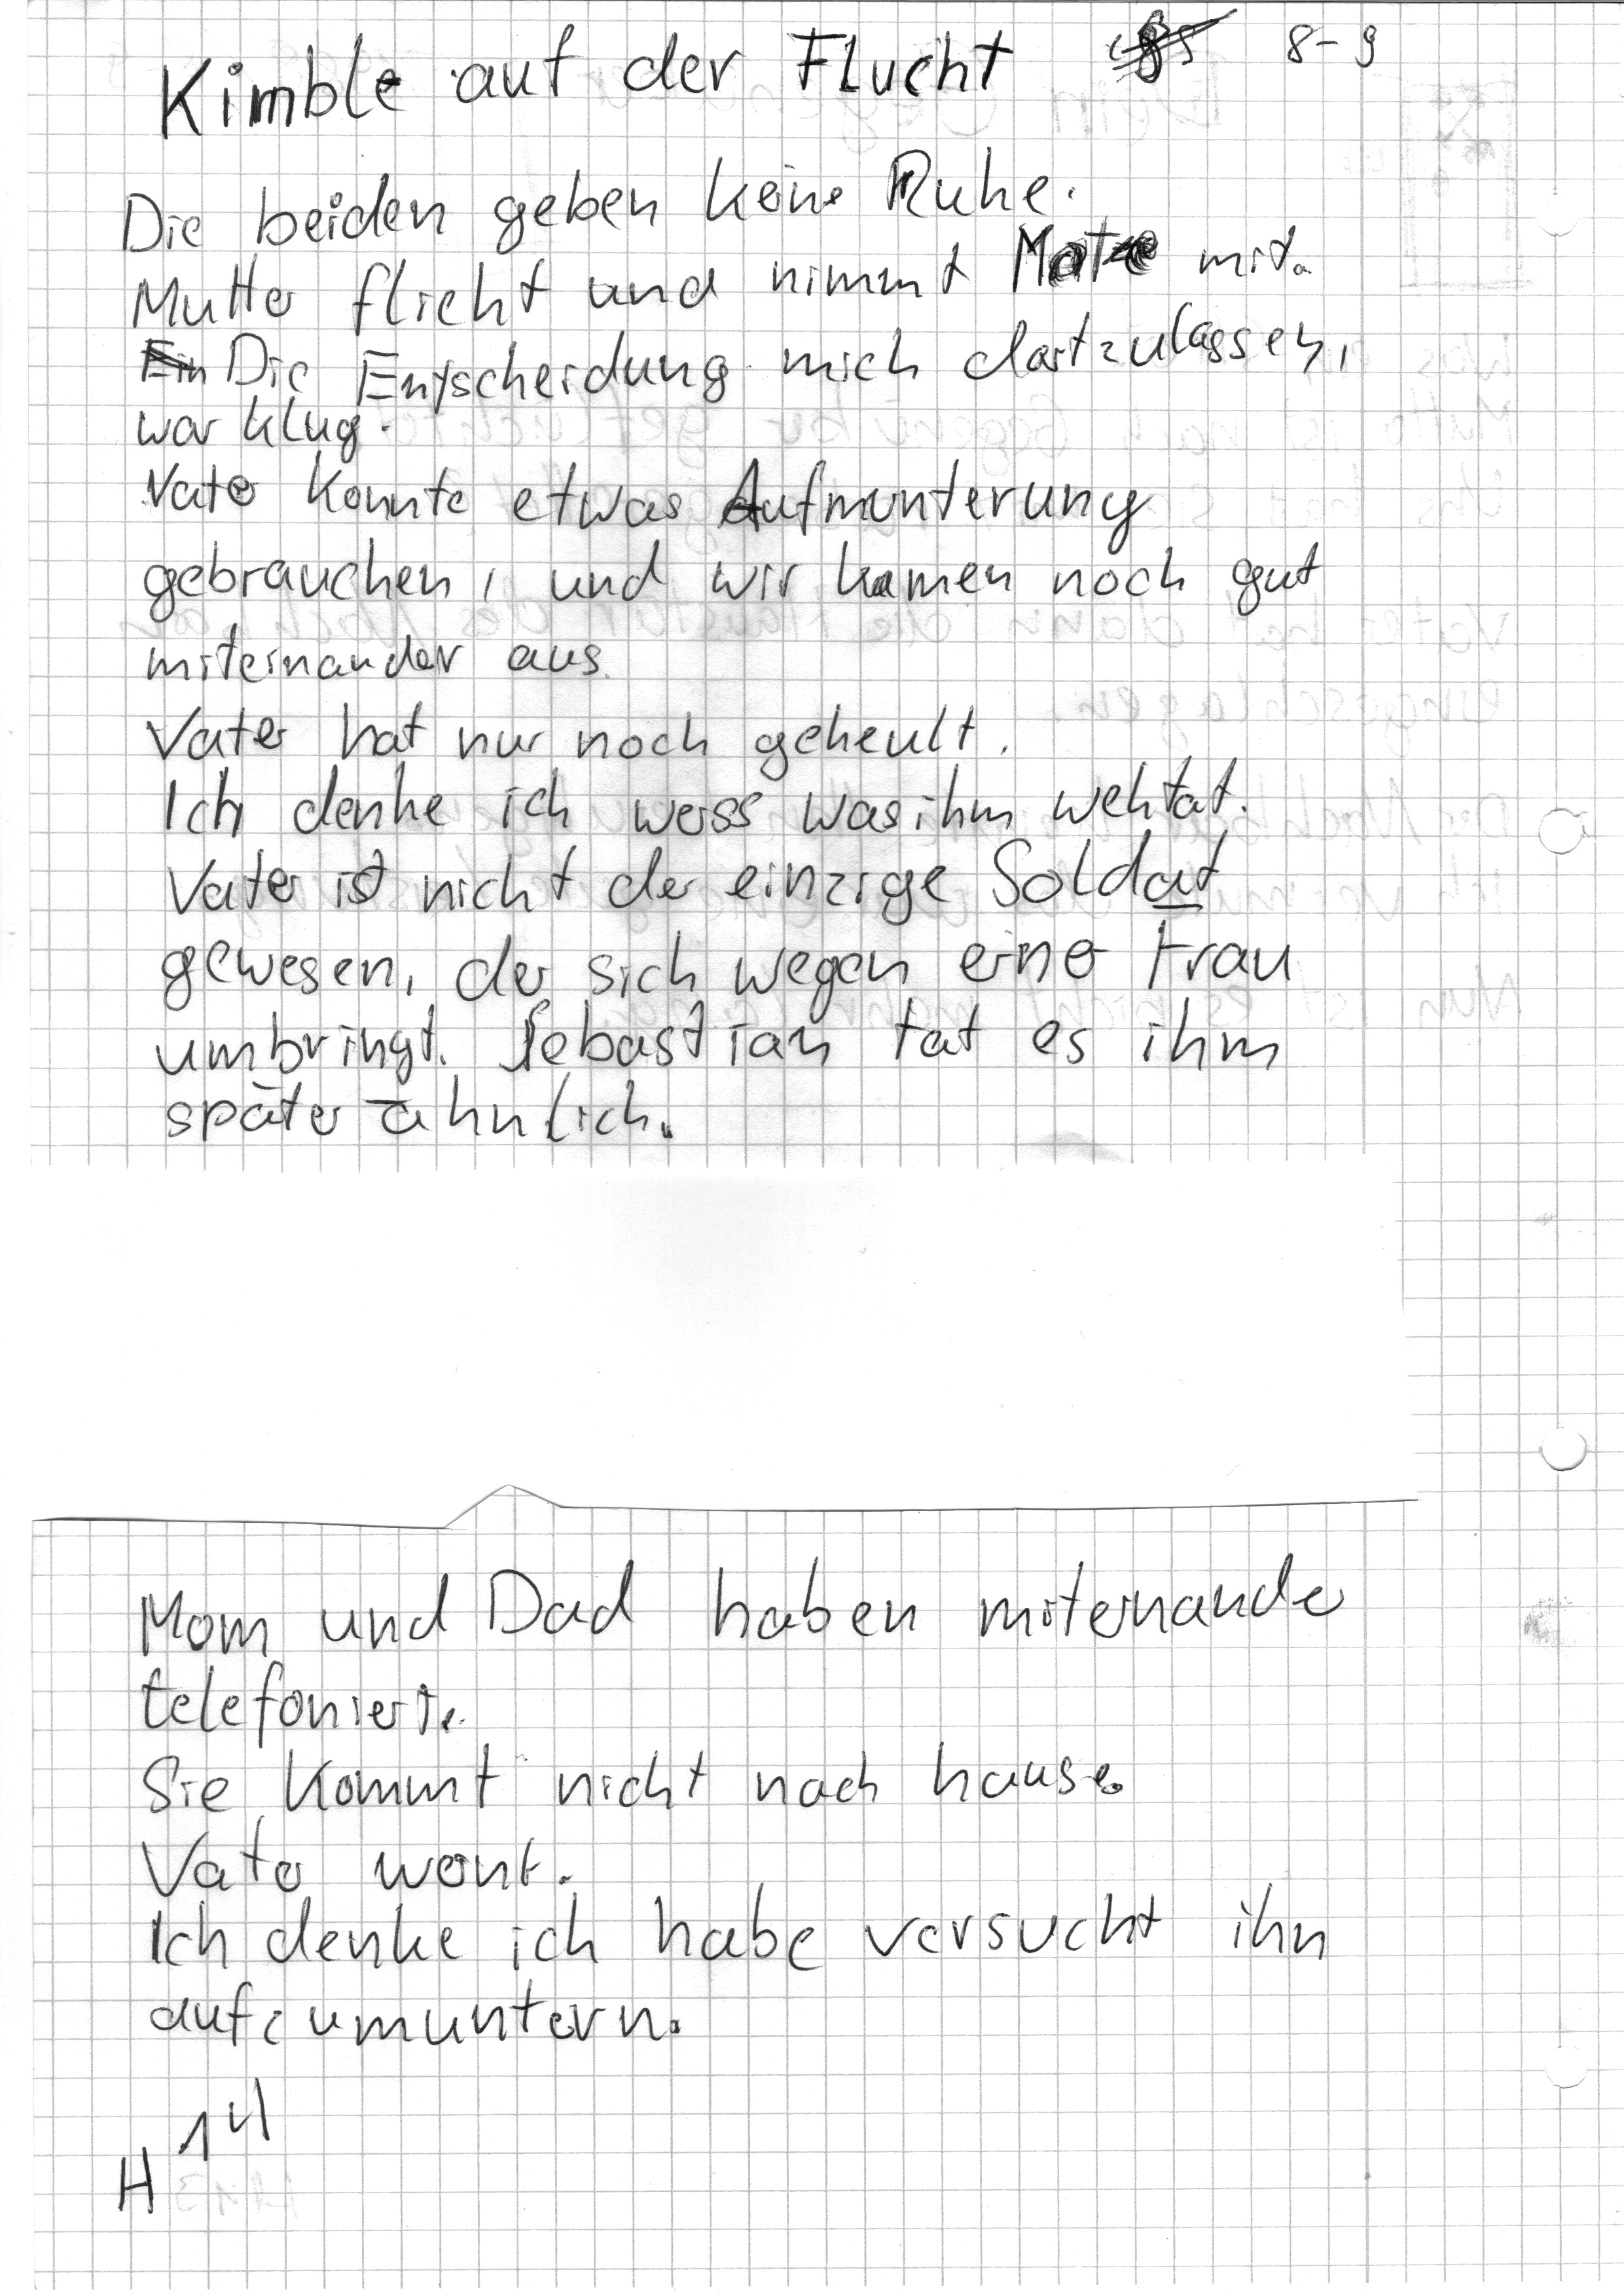 Kimble auf der Flucht 8-9
Die beiden geben keine Ruhe.
Mutter flieht und nimmt mit.
Die Entscheidung mich dortzulassen,
war klug.
Vater konnte etwas Aufmunterung
gebrauchen, und wir kamen noch gut
miteinander aus.
Vater hat nur noch geheult.
Ich denke ich weiss was ihm wehtat.
Vater ist nicht der einzige Soldat
gewesen, der sich wegen einer Frau
umbringt. Sebastian tat es ihm
später ähnlich.
Mom und Dad haben miteinander
telefoniert.
Sie kommt nicht nach hause.
Vater weint.
Ich denke ich habe versucht ihn
aufzumuntern.
H 14